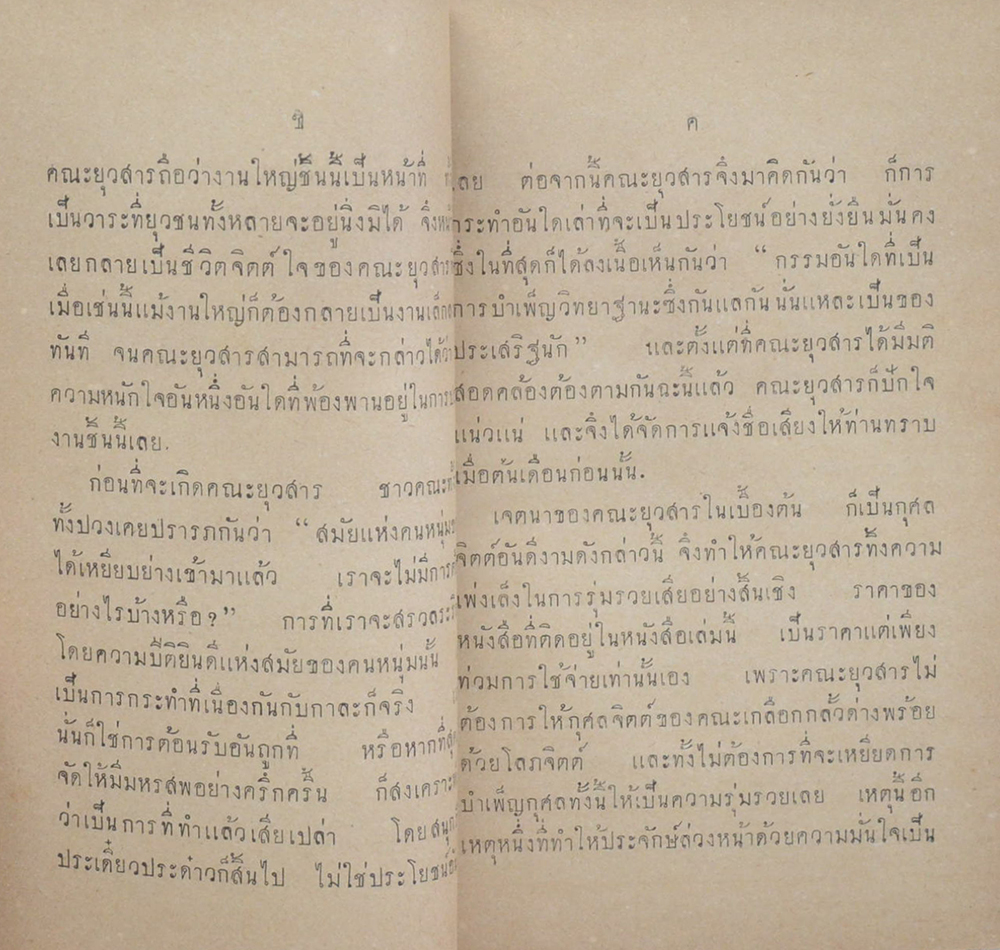 ข
คณะยุวสารถือว่างานใหญ่ชิ้นนี้เป็นหน้าที่
เป็นวาระที่ยุวชนทั้งหลายจะอยู่นิ่งมิได้ จึง
เลยกลายเป็นชีวิตจิตต์ใจของคณะยุวสาร
เมื่อเช่นนี้แม้งานใหญ่ก็ต้องกลายเป็นงานเล็ก
ทันที จนคณะยุวสารสามารถที่จะกล่าวได้ว่า
ความหนักใจอันหนึ่งอันใดที่พ้องพานอยู่ในการ
งานชิ้นนี้เลย.
ก่อนที่จะเกิดคณะยุวสาร ชาวคณะ
ทั้งปวงเคยปรารภกันว่า “สมัยแห่งคนหนุ่ม
ได้เหยียบย่างเข้ามาแล้ว เราจะไม่มีการ
อย่างไรบ้างหรือ?” การที่เราจะสรวล
โดยความปีติยินดีแห่งสมัยของคนหนุ่มนั้น
เป็นการกระทำที่เนื่องกันกับกาละก็จริง
นั่นก็ใช่การต้อนรับอันถูกที่ หรือหากที่
จัดให้มีมหรสพอย่างครึกครื้น ก็สงเคราะ
ว่าเป็นการที่ทำแล้วเสียเปล่า โดย
ประเดี๋ยวประด๋าวก็สิ้นไป ไม่ใช่ประโยชน์
ค
เลย ต่อจากนี้คณะยุวสารจึงมาคิดกันว่า ก็การ
กระทำอันใดเล่าที่จะเป็นประโยชน์อย่างยั่งยืนมั่นคง
ซึ่งในที่สุดก็ได้ลงเนื้อเห็นกันว่า “กรรมอันใดที่เป็น
การบำเพ็ญวิทยาฐานะซึ่งกันแลกันนั่นแหละเป็นของ
ประเสริฐนัก” และตั้งแต่ที่คณะยุวสารได้มีมติ
สอดคล้องต้องตามกันฉะนี้แล้ว คณะยุวสารก็ปักใจ
แน่วแน่ และจึงได้จัดการแจ้งชื่อเสียงให้ท่านทราบ
เมื่อต้นเดือนก่อนนั้น.
เจตนาของคณะยุวสารในเบื้องต้น ก็เป็นกุศล
จิตต์อันดีงามดังกล่าวนี้ จึงทำให้คณะยุวสารทิ้งความ
เพ่งเล็งในการรุ่มรวยเสียอย่างสิ้นเชิง ราคาของ
หนังสือที่ติดอยู่ในหนังสือเล่มนี้ เป็นราคาแต่เพียง
ท่วมการใช้จ่ายเท่านั้นเอง เพราะคณะยุวสารไม่
ต้องการให้กุศลจิตต์ของคณะเกลือกกลั้วด่างพร้อย
ด้วยโลภจิตต์ และทั้งไม่ต้องการที่จะเหยียดการ
บำเพ็ญกุศลทั้งนี้ให้เป็นความรุ่มรวยเลย เหตุนี้อีก
เหตุหนึ่งที่ทำให้ประจักษ์ล่วงหน้าด้วยความมั่นใจเป็น